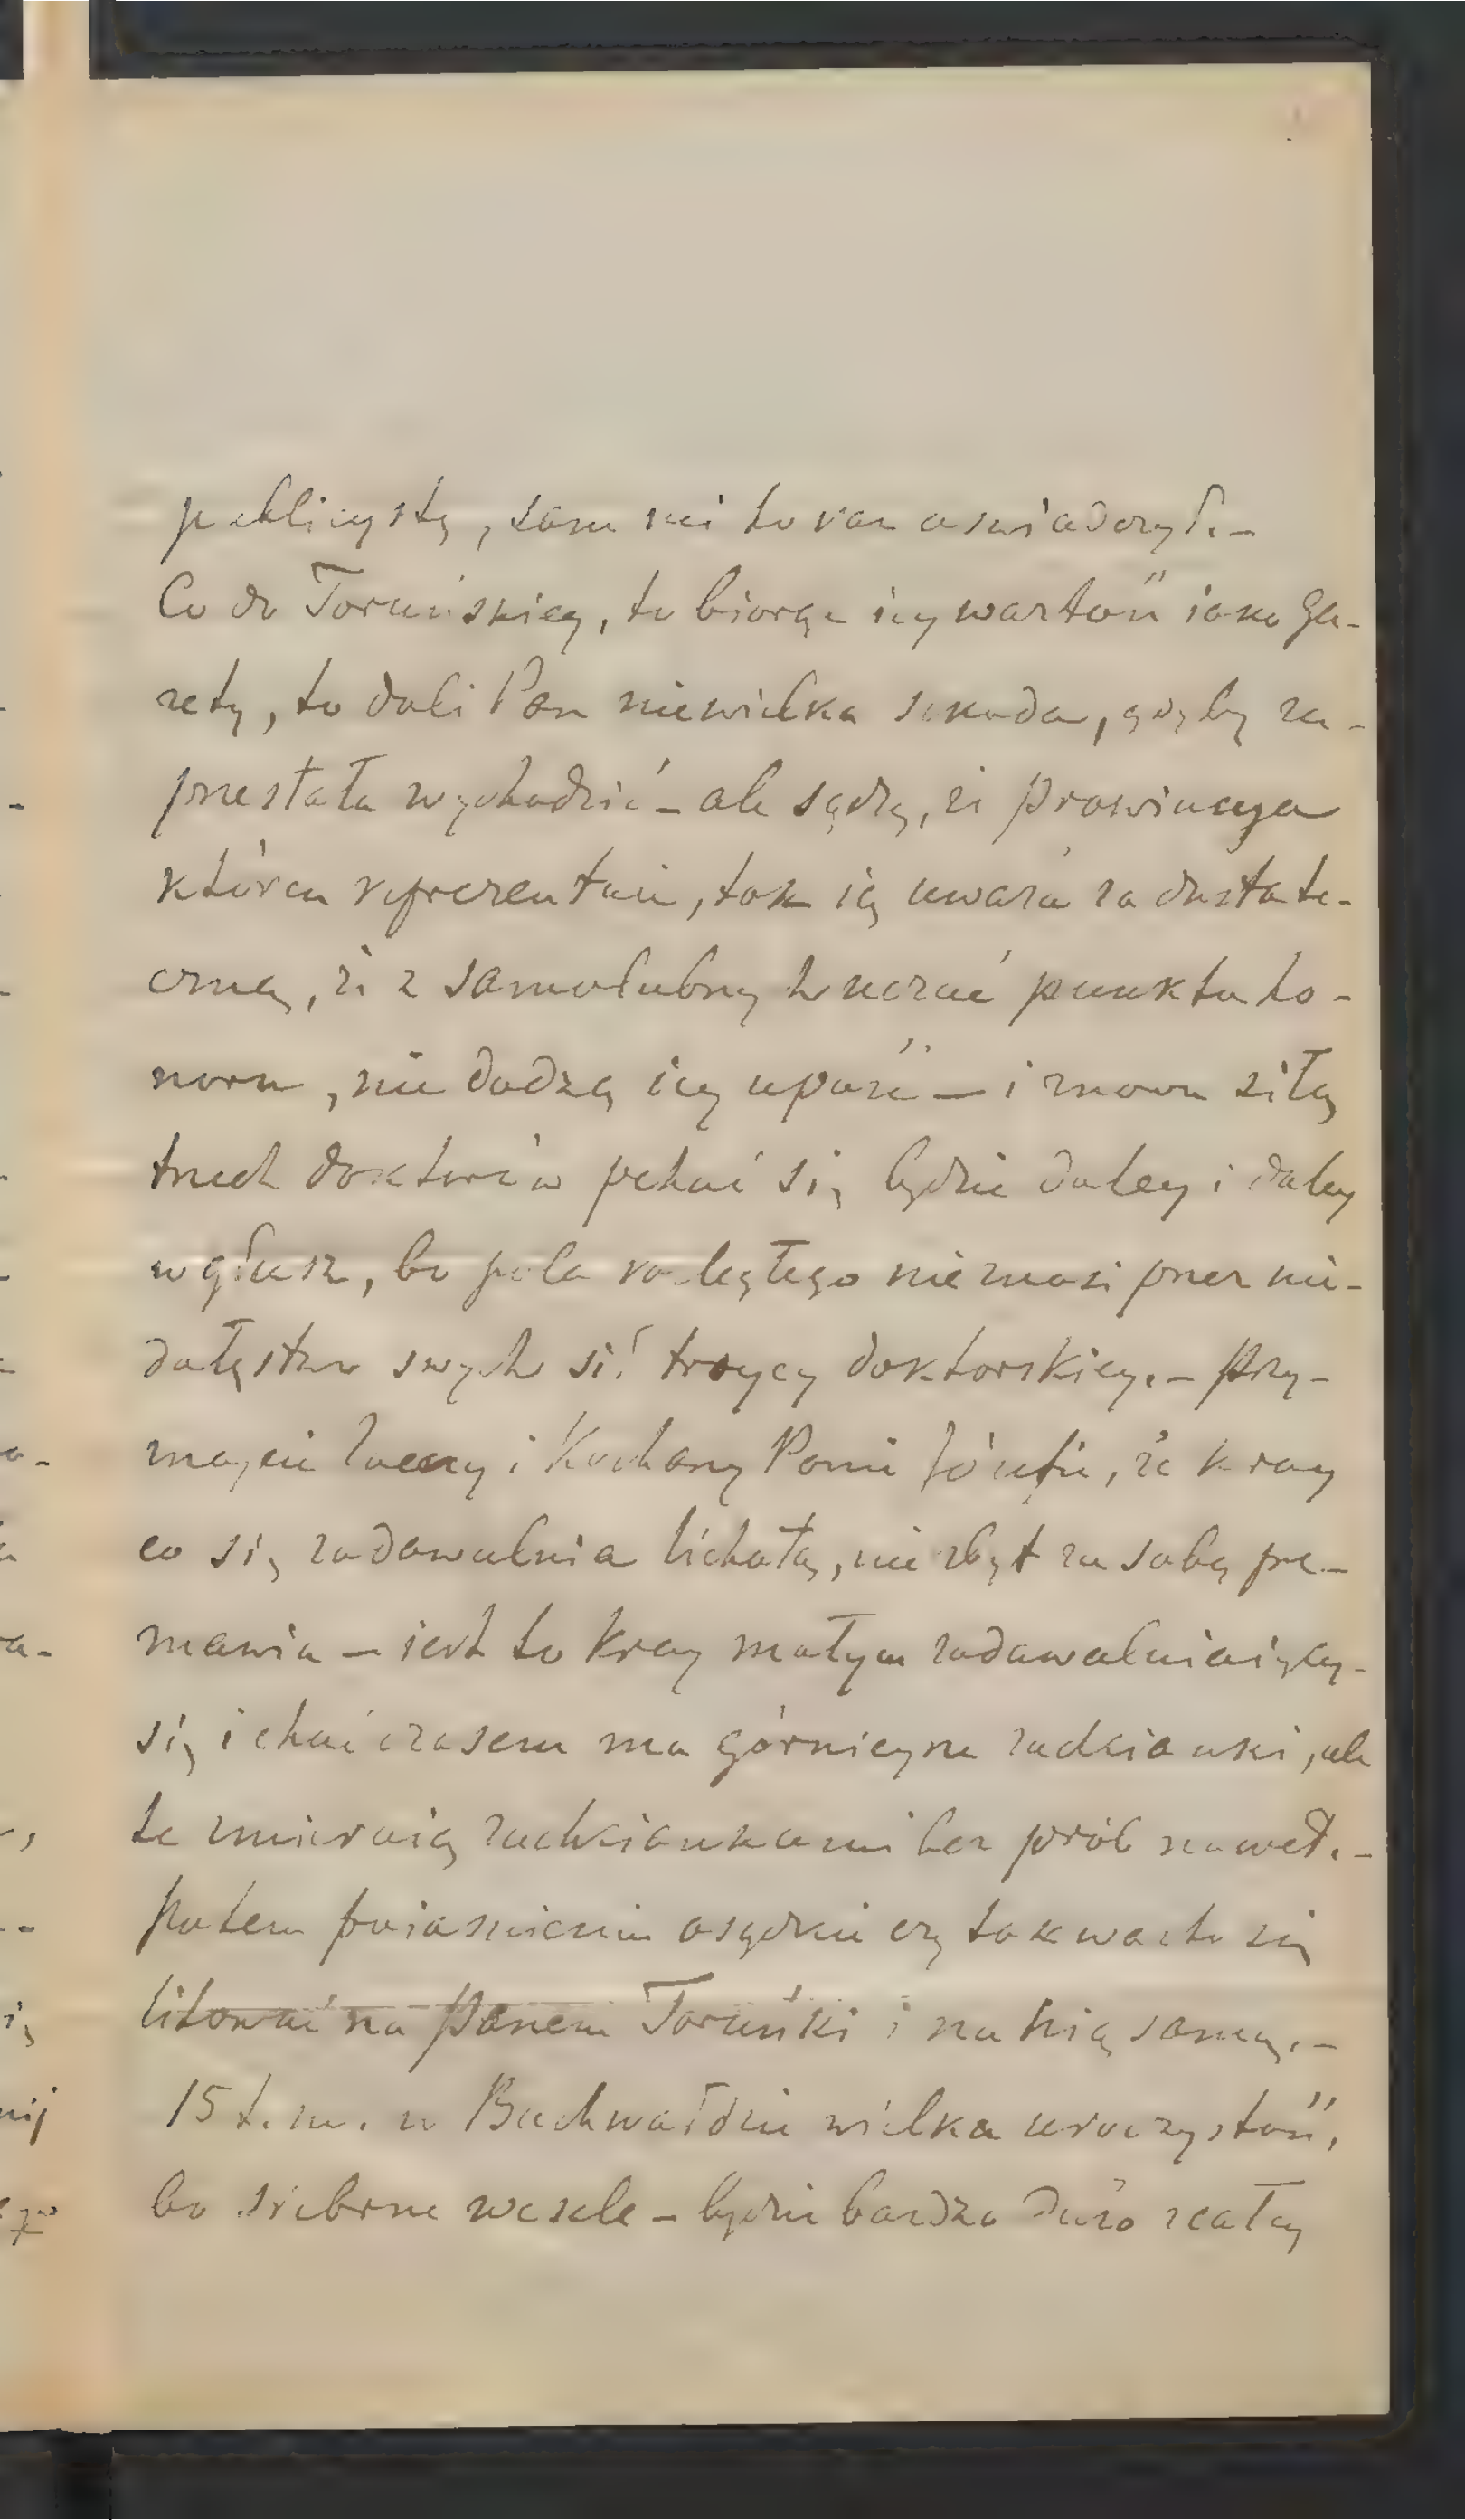 publicystę, sam mi to raz oświadczył. –
Co do Toruńskiey, to biorąc iey wartość iako ga-
zety, to dali Pan niewielka szkoda, gdyby za-
przestała wychodzić – ale sądzę, że prowincya
którą reprezentuie, tak ią uważa za dostate-
czną, że z samolubnych uczuć punktu ho-
noru, nie dadzą iey upaść – i znowu siłą
trzech doktorów pchać się będzie daley i daley
w głusz, bo pola rozległego nie znosi przez nie-
dołęstwo swych sił troycy doktorskiey. – Przy-
znaycie i Kochany Panie Józefie, że kray
co się zadawalnia lichotą, nie zbyt za sobą prze-
mawia – iest to kray małym zadawalniaiący
się i choć czasem ma górnieysze zachcianki, ale
te umieraią zachciankami bez prób nawet. –
Potem poiaśnieniu osądzcie czy tak warto się
litować na Panem Toruński i na nią samą. –
15 t. m. w Buchwałdzie wielka uroczystość,
bo srebrne wesele – będzie bardzo dużo z całey